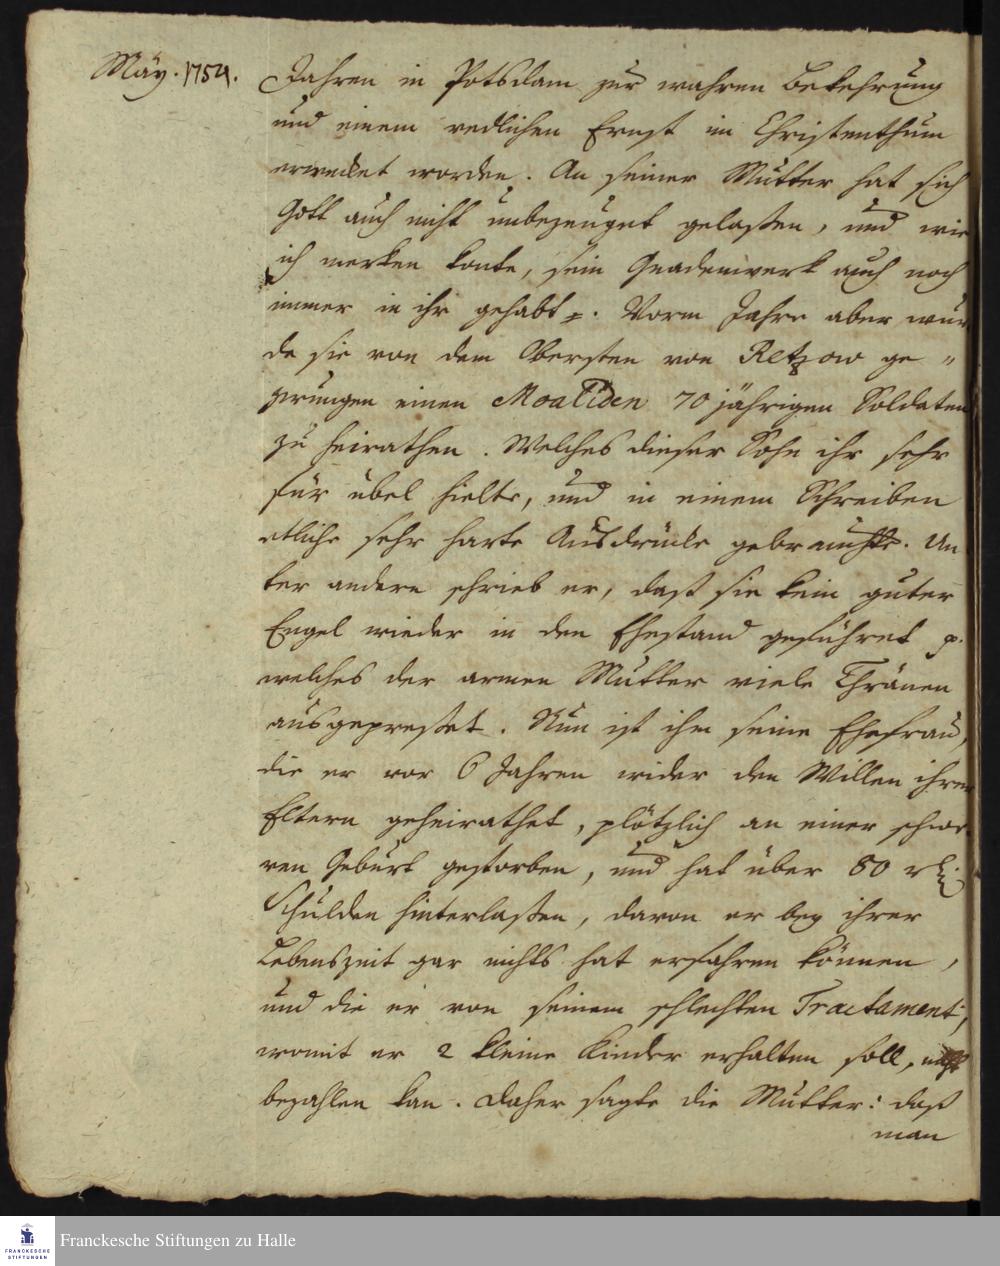 May. 1754.
Jahren in Potsdam zur wahren Bekehrung
und einem redlichen Ernst im Christenthum
erwecket worden. An seiner Mutter hat sich
Gott auch nicht unbezeuget gelaßen, und wie
ich merken konte, sein Gnadenwerk auch noch
immer in ihr gehabt p. Vorm Jahre aber wur
de sie von dem Obersten von Retzow ge"
zwungen einen 70 jährigen Soldaten
zu heirathen. Welches dieser Sohn ihr sehr
für übel hielte, und in einem Schreiben
etliche sehr harte Ausdrücke gebrauchte. Un
ter andern schrieb er, daß sie kein guter
Engel wieder in den Ehestand geführet p.
welches der armen Mutter viele Thränen
ausgepreßet. Nun ist ihm seine Ehefrau,
die er vor 6 Jahren wider den Willen ihrer
Eltern geheirathet, plötzlich an einer schwe
ren Geburt gestorben, und hat über 80 rthl
Schulden hinterlaßen, davon er bey ihrer
Lebenszeit gar nichts hat erfahren können,
und die er von seinem schlechten Tractament,
womit er 2 kleine Kinder erhalten soll, nicht
bezahlen kan. Daher sagte die Mutter: daß
man
Franckesche Stiftungen zu Halle
FRANCKESCHE
STIFTUNGEN